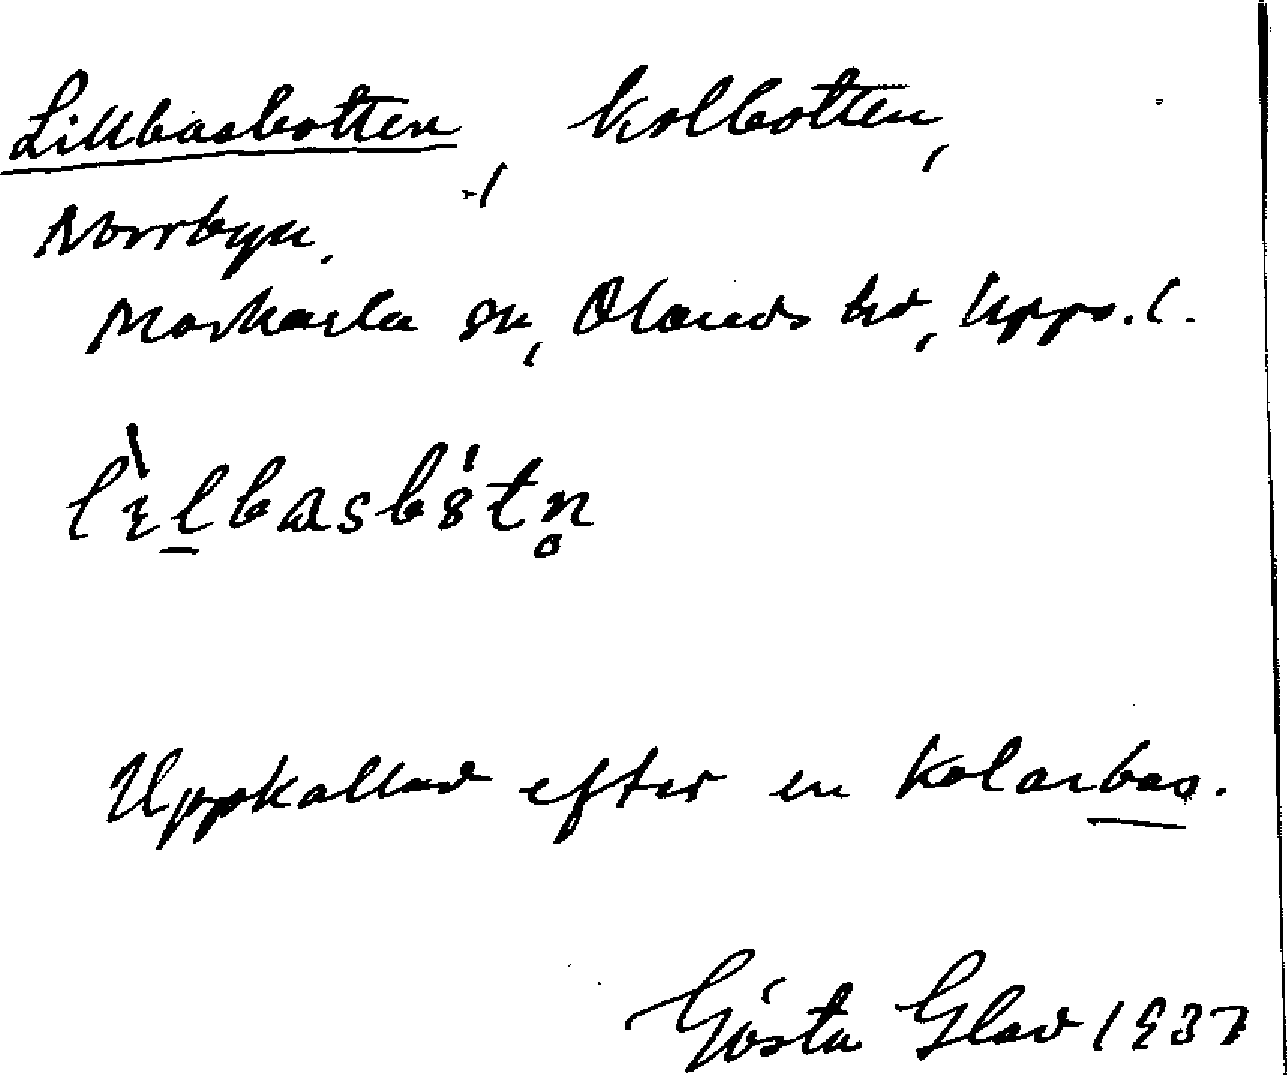 Lillbasbotten, kolbotten,
Norrbyn.
Morkarla sn, Olands hd, Upps. l.
Uppkallad efter en kolarbas.
Gösta Glad 1937